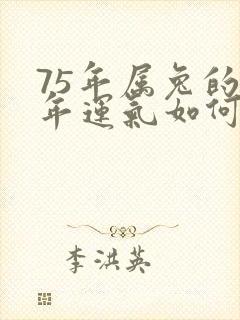 75年属兔的
年運氣如何
李洪英